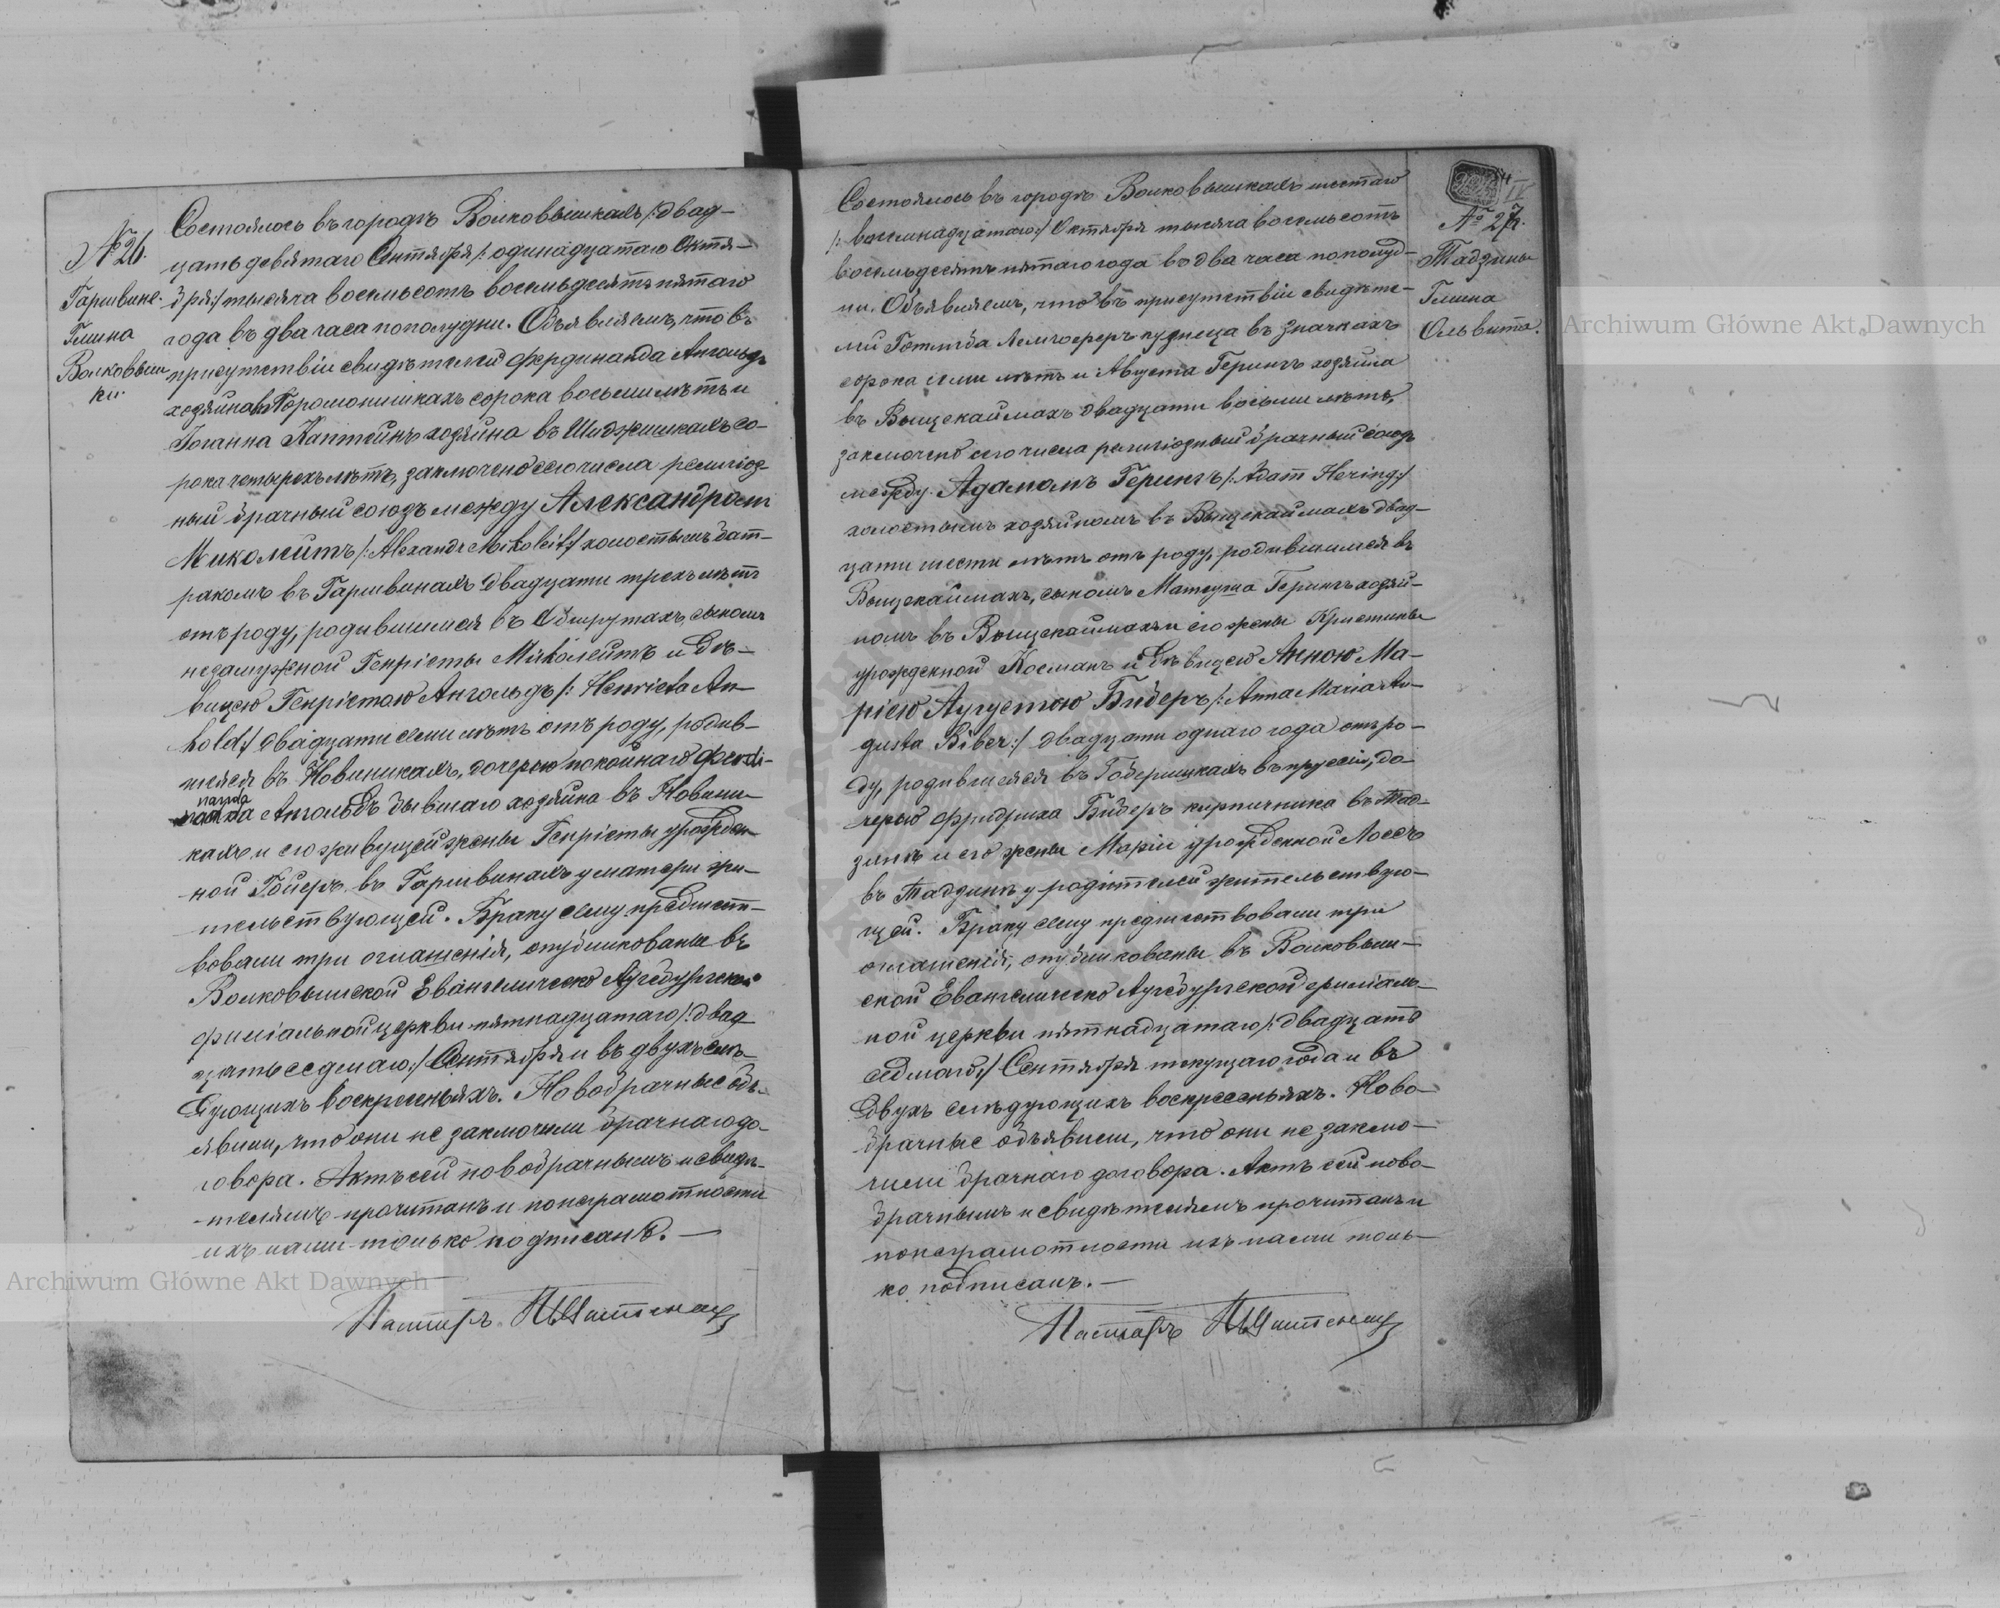 № 26.
Гаршвине.
Гмина
Волковыш
ки.
Состоялось въ городѣ Волковышкахъ /: двад-
цать девятаго Сентября /: одинадцатаго Октя-
бря :/ тысяча восемьсотъ восемьдесятъ пятаго
года въ два часа пополудни. Объявляемъ, что въ
присутствіи свидѣтелей Фердинанда Ангольдъ
хозяина въ сорока восьми лѣтъ и
Іоганна хозяина въ Шаджишкахъ со-
рока четырехъ лѣтъ, заключенъ сего числа религіоз-
ный брачный союзъ между Александромъ
Миколейтъ /: Alexandr Mikoleit :/ холостымъ бат-
ракомъ въ Гаршвинахъ двадцати трехъ лѣтъ
отъ роду, родившимся въ Обшрутахъ, сыномъ
незамужной Генріеты Миколейтъ и дѣ-
вицею Генріетою Ангольдъ /: Henrieta An-
hold :/ двадцати семи лѣтъ отъ роду, родив-
шеяся въ Новиникахъ, дочерью покойнаго Ферди-
нанда
Ангольдъ бывшаго хозяина въ Новини-
кахъ и его живущей жены Генріеты урожден-
ной Гойеръ въ Гаршвинахъ у матери жи-
тельствующей. Браку сему предшест-
вовали три оглашенія, опубликованы въ
Волковышской Евангелическо Аугсбургской
филіальной церкви пятнадцатаго /: двад
цать седмаго :/ Сентября и въ двухъ слѣ-
дующихъ воскресеньяхъ. Новобрачные объ-
явили, что они не заключили брачнаго до-
говора. Актъ сей новобрачнымъ и свидѣ-
телямъ прочитанъ и по неграмотности
ихъ нами только подписанъ. —
Пасторъ
IV
№ 27.
Тадзины
Гмина
Ольвита.
Состоялось въ городѣ Волковышкахъ шестаго
/: восемнадцатаго :/ Октября тысяча восемьсотъ
восемьдесятъ пятаго года въ два часа пополуд-
ни. Объявляемъ, что въ присутствіи свидѣте-
лей Готлиба кузнеца въ
сорока семи лѣтъ и Августа Герингъ хозяина
въ Выщекаймахъ двадцати восьми лѣтъ,
заключенъ сего числа религіозный брачный союзъ
между Адамомъ Герингъ /: Adam Hering :/
холостымъ хозяиномъ въ Выщекаймахъ двад-
цати шести лѣтъ отъ роду, родившимся въ
Выщекаймахъ, сыномъ Матеуша Герингъ хозяи-
номъ въ Выщекаймахъ и его жены Кристины
урожденной Косманъ и дѣвицею Анною Ма-
ріею Аугустою Биберъ /: Anna Maria Au-
gusta Biber :/ двадцати одного года отъ ро-
ду, родившеяся въ въ Пруссіи, до-
черью Фридриха Биберъ кирпичника въ Тад-
зинѣ и его жены Маріи урожденной Лоссъ
въ Тадзинѣ у родителей жительствую-
щей. Браку сему предшествовали три
оглашенія, опубликованы въ Волковыш-
ской Евангелическо Аугсбургской филіаль-
ной церкви пятнадцатаго /: двадцать
седмаго :/ Сентября текущаго года и въ
двухъ слѣдующихъ воскресеньяхъ. Ново-
брачные объявили, что они не заклю-
чили брачнаго договора. Актъ сей ново-
брачнымъ и свидѣтелямъ прочитанъ и
по неграмотности ихъ нами толь-
ко подписанъ. —
Пасторъ
Archiwum Główne Akt Dawnych
Archiwum Główne Akt Dawnych